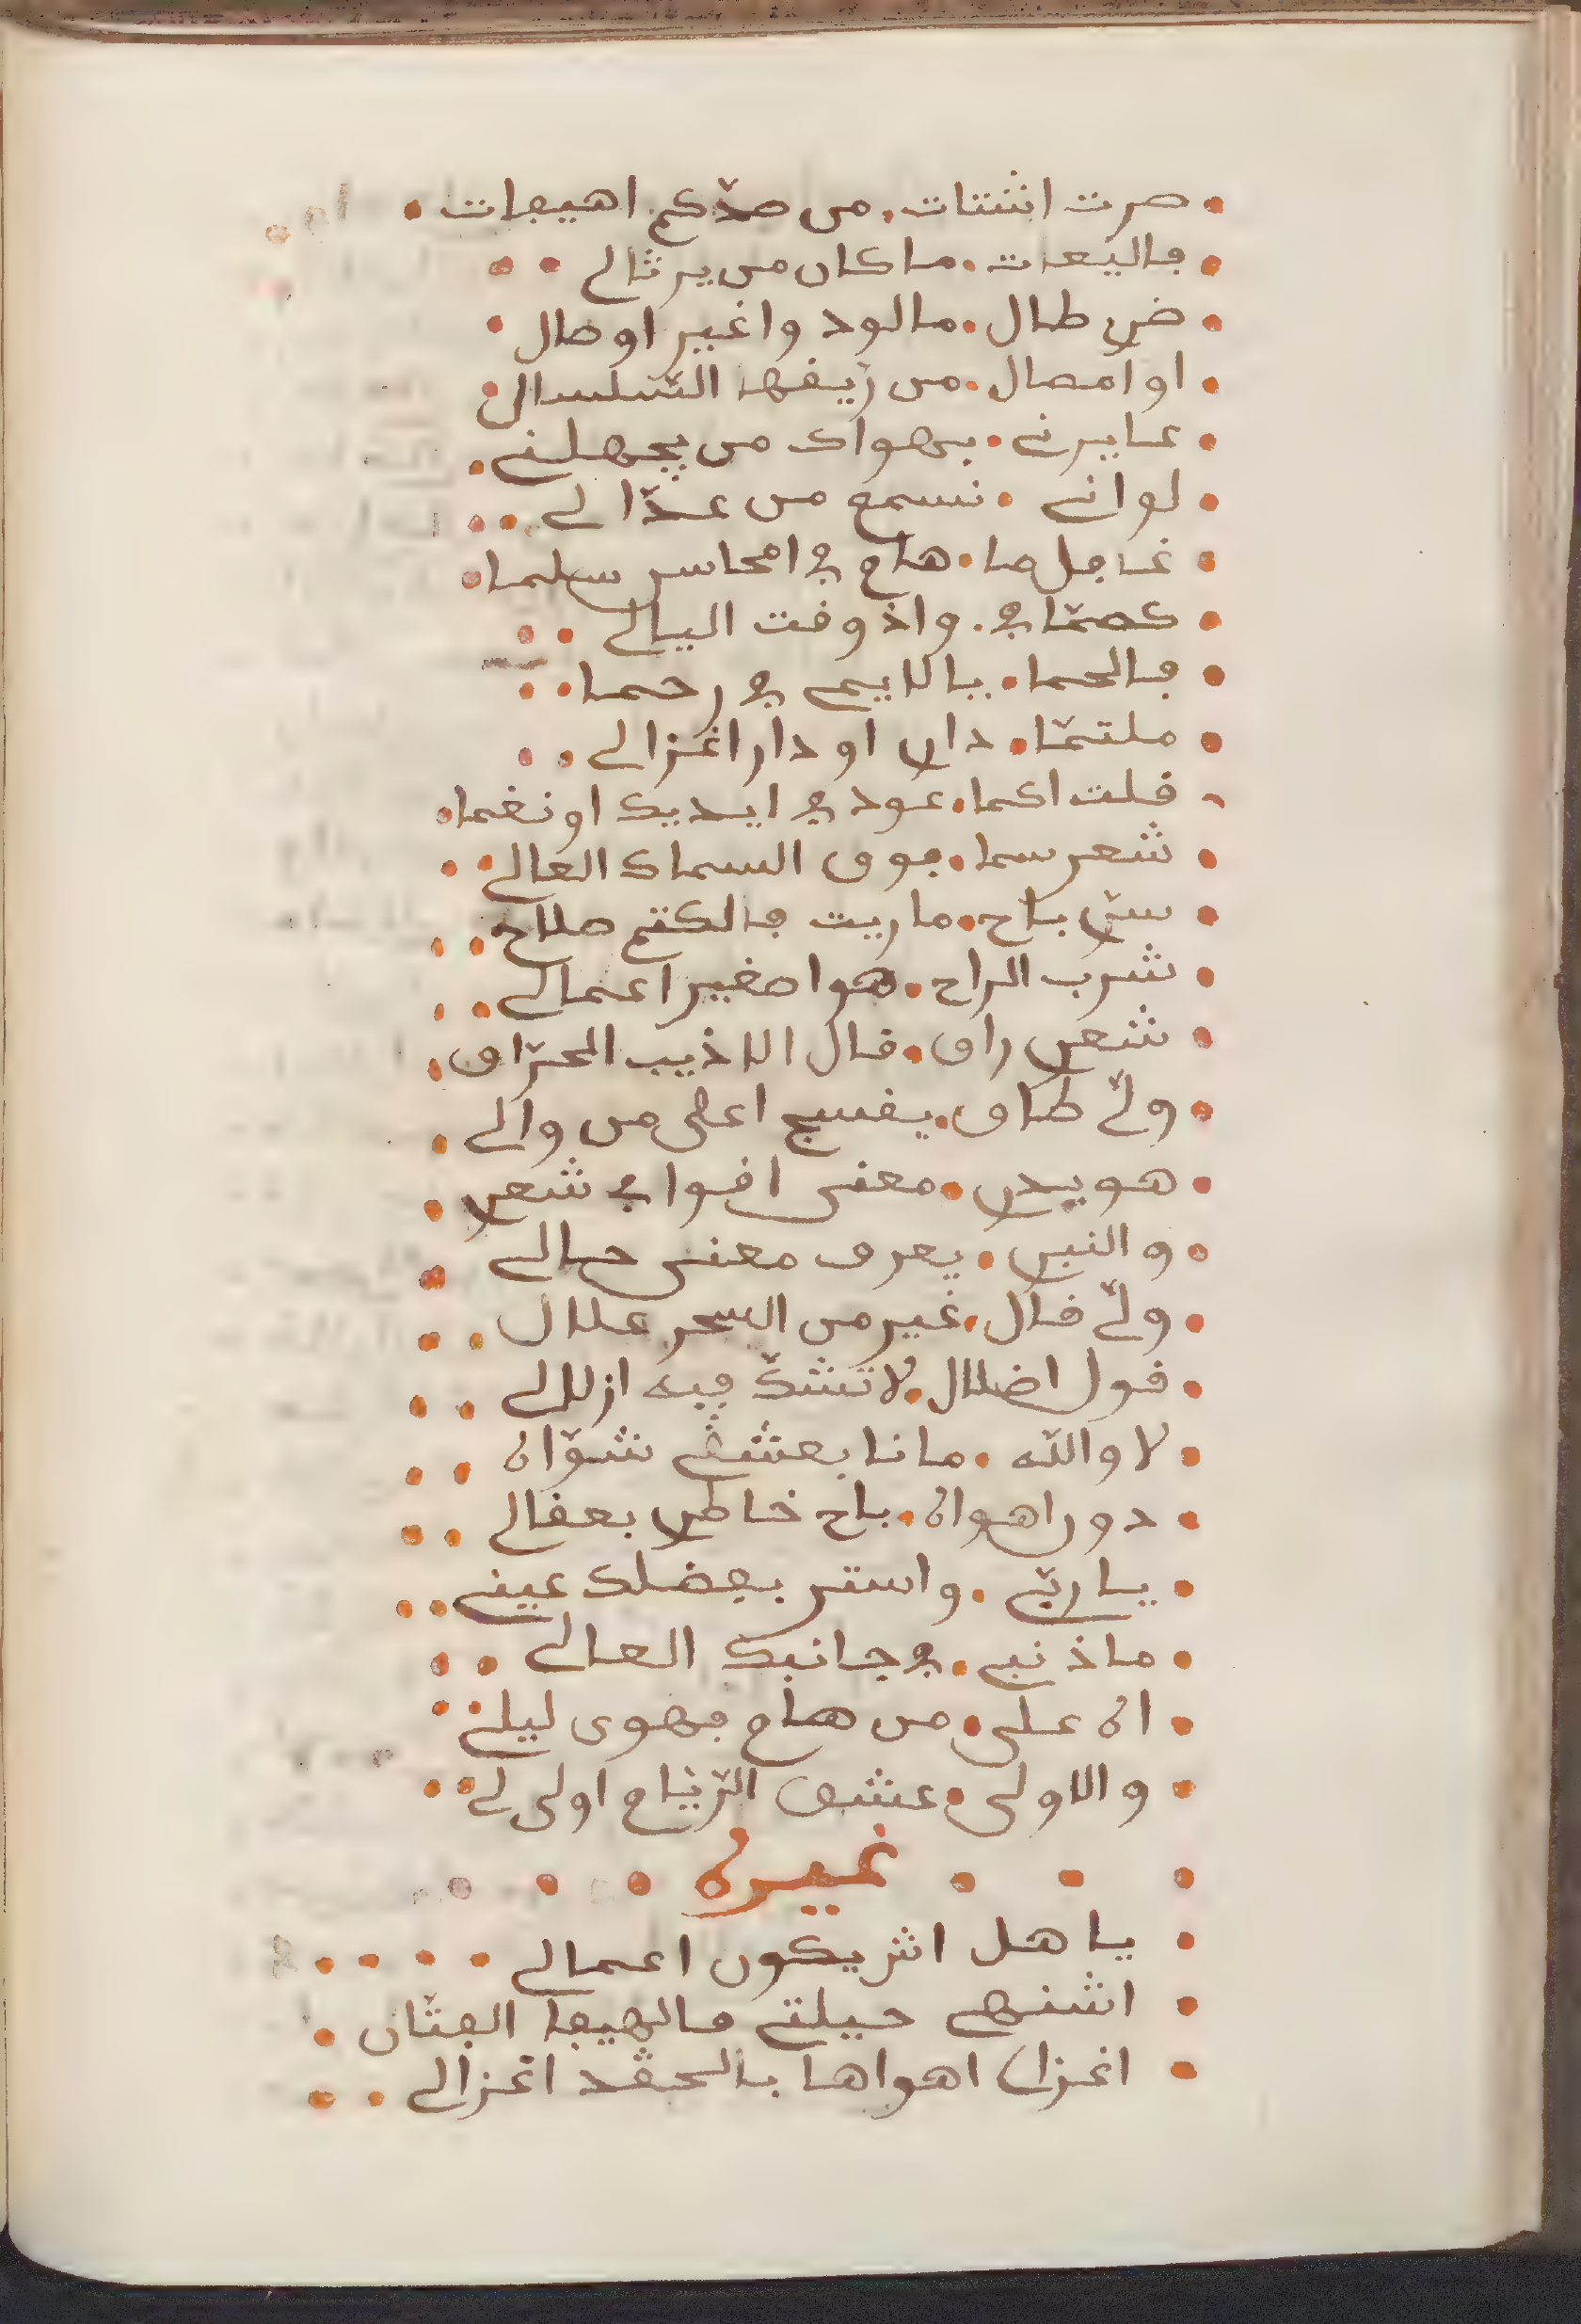 صرت اشتات. من صدّكم اهيفات
فاليعات. ما كان من يرثالي
ضي طال. مالود واغيير اوصال
او امصال. من ريفها السّلسال
عايرني. بهواك من يجهلني
لواني. نسمع من عذّالي
غافل ما. هام في امحاسن سلما
كصمّا في. واذ وفت اليالي
فالحما. يالايم في رحما
ملتمّا. داري او دار اغزالي
قلت اكما. عود في ايديك او نغما
شعر سما. فوق السماك العالي
سرّي باح. ماريت فالكتم صلاح
شرب الراح. هوا صغير اعمالي
شعري راق. قال الاذيب الحرّاق
ولّي طاق. يفسج اعلى من والي
هو يدري. معنى اقوافي شعري
والنبري. يعرف معنى حالي
ولّي قال. غير من السحر علال
قول اضلال. لا تشكّ فيه ازلالي
لا والله. مانا بعشقي شوّان
دور اهوان. باح خاطري بعقالي
يا ربّي. واستر بفضلك عيني
ماذنبي. في جانبك العالي
ان على. من هام فهوى ليلى
والاولى. عشق الرّيام اولى لي
غيره
ياهل اش يكون اعمالي
اشنهي حيلتي مالهيفا الفتّان
اغزال اهواها بالحقد اغزالي